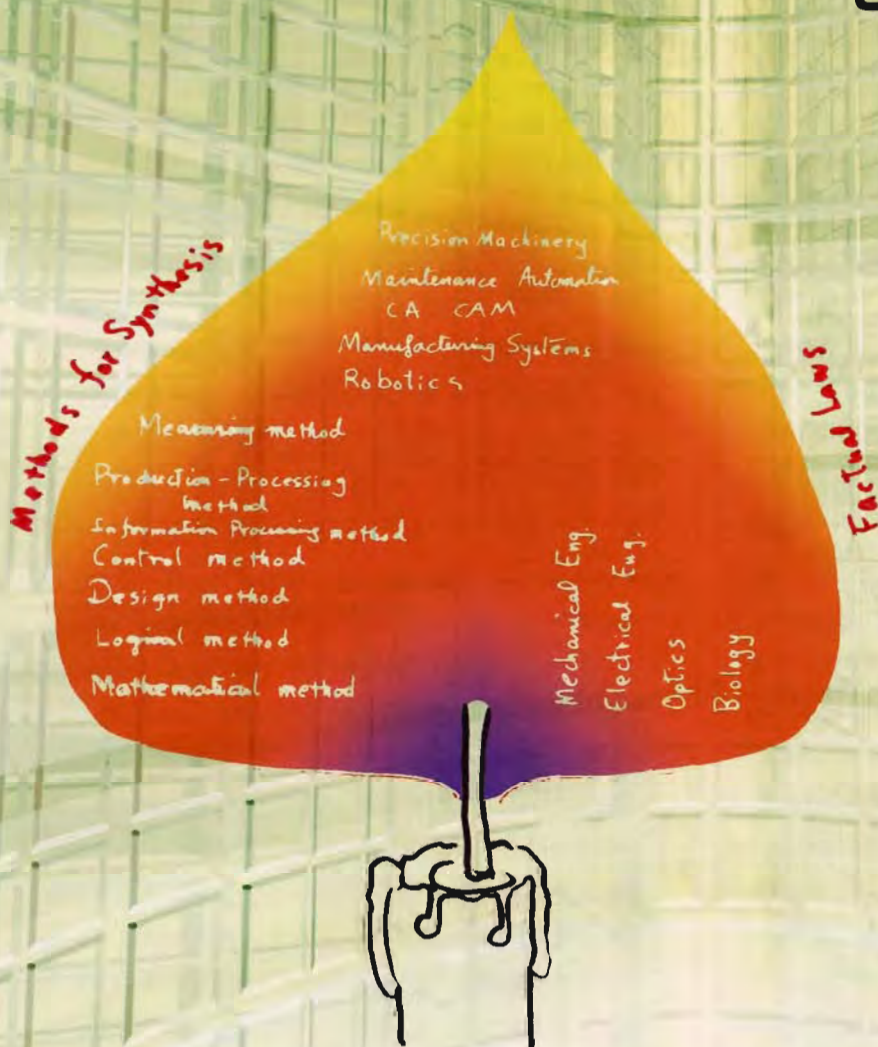 Methods for Synthesis
Factual Laws
Precision Machinery
Maintenance Automation
CA CAM
Manufacturing Systems
Robotics
Measuring method
Production-Processing
method
Information Processing method
Control method
Design method
Logical method
Mathematical method
Mechanical Eng.
Electrical Eng.
Optics
Biology